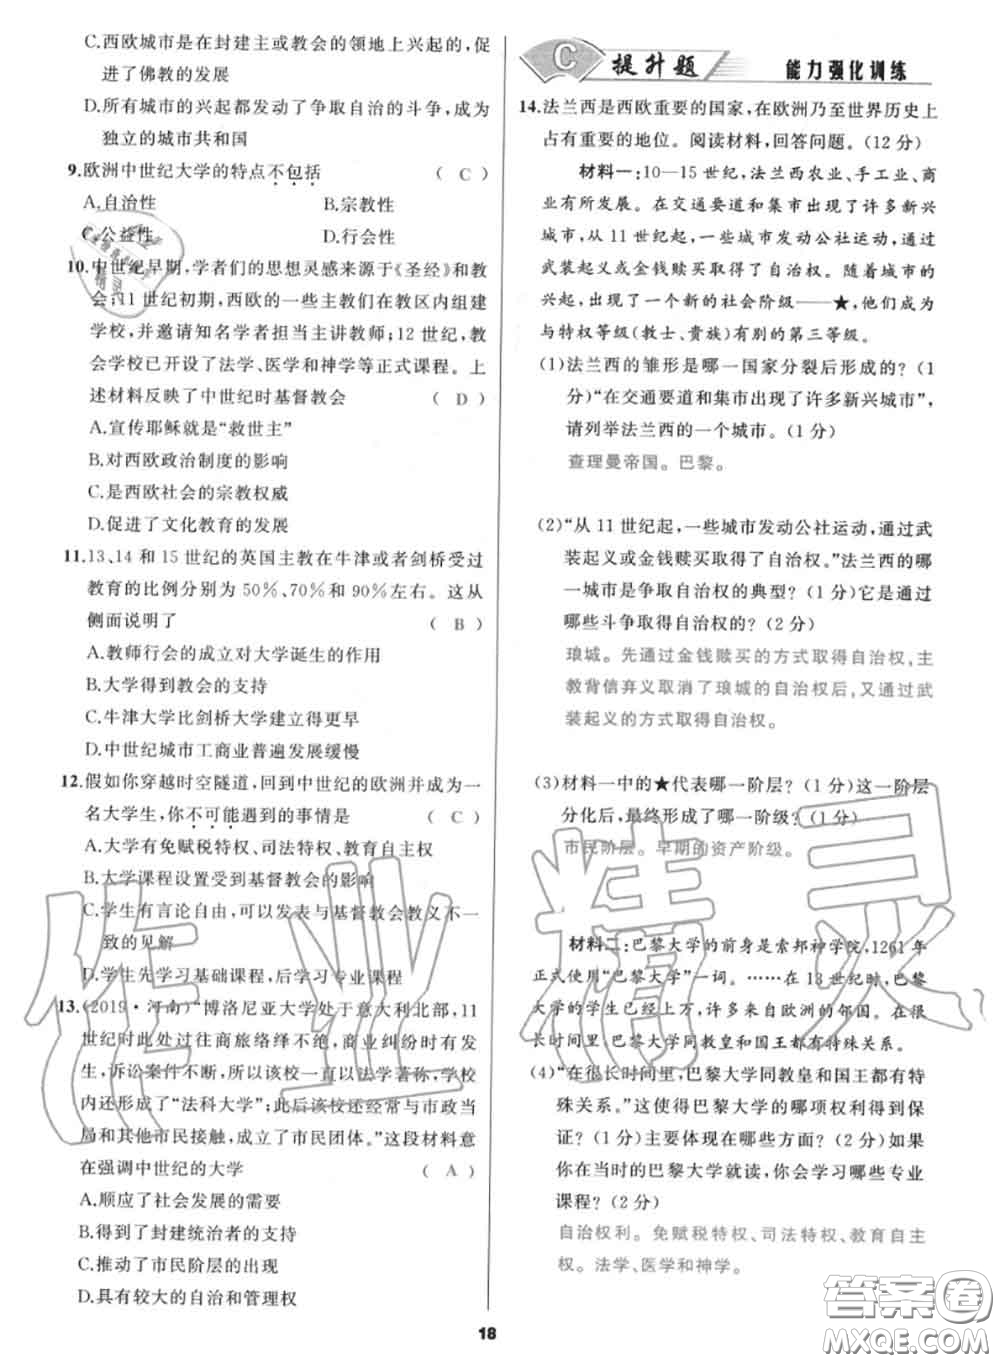 C.西欧城市是在封建主或教会的领地上兴起的,促
进了佛教的发展
D.所有城市的兴起都发动了争取自治的斗争,成为
独立的城市共和国
9.欧洲中世纪大学的特点不包括 ( C )
A.自治性 B.宗教性
C.公益性 D.行会性
10.中世纪早期,学者们的思想灵感来源于《圣经》和教
会;11世纪初期,西欧的一些主教们在教区内组建
学校,并邀请知名学者担当主讲教师;12世纪,教
会学校已开设了法学、医学和神学等正式课程。上
述材料反映了中世纪时基督教会 ( D )
A.宣传耶稣就是“救世主”
B.对西欧政治制度的影响
C.是西欧社会的宗教权威
D.促进了文化教育的发展
11.13、14和15世纪的英国主教在牛津或者剑桥受过
教育的比例分别为50%、70%和90%左右。这从
侧面说明了 ( B )
A.教师行会的成立对大学诞生的作用
B.大学得到教会的支持
C.牛津大学比剑桥大学建立得更早
D.中世纪城市工商业普遍发展缓慢
12.假如你穿越时空隧道,回到中世纪的欧洲并成为一
名大学生,你不可能遇到的事情是 ( C )
A.大学有免赋税特权、司法特权、教育自主权
B.大学课程设置受到基督教会的影响
C.学生有言论自由,可以发表与基督教会教义不一
致的见解
D.学生先学习基础课程,后学习专业课程
13.(2019·河南)“博洛尼亚大学处于意大利北部,11
世纪时此处过往商旅络绎不绝,商业纠纷时有发
生,诉讼案件不断,所以该校一直以法学著称,学校
内还形成了“法科大学”;此后该校还经常与市政当
局和其他市民接触,成立了市民团体。”这段材料意
在强调中世纪的大学 ( A )
A.顺应了社会发展的需要
B.得到了封建统治者的支持
C.推动了市民阶层的出现
D.具有较大的自治和管理权
C 提升题 能力强化训练
14.法兰西是西欧重要的国家,在欧洲乃至世界历史上
占有重要的地位。阅读材料,回答问题。(12分)
材料一:10—15世纪,法兰西农业、手工业、商
业有所发展。在交通要道和集市出现了许多新兴
城市,从11世纪起,一些城市发动公社运动,通过
武装起义或金钱赎买取得了自治权。随着城市的
兴起,出现了一个新的社会阶级——★,他们成为
与特权等级(教士、贵族)有别的第三等级。
(1)法兰西的雏形是哪一国家分裂后形成的?(1
分)“在交通要道和集市出现了许多新兴城市”,
请列举法兰西的一个城市。(1分)
查理曼帝国。巴黎。
(2)“从11世纪起,一些城市发动公社运动,通过武
装起义或金钱赎买取得了自治权。”法兰西的哪
一城市是争取自治权的典型?(1分)它是通过
哪些斗争取得自治权的?(2分)
琅城。先通过金钱赎买的方式取得自治权,主
教背信弃义取消了琅城的自治权后,又通过武
装起义的方式取得自治权。
(3)材料一中的★代表哪一阶层?(1分)这一阶层
分化后,最终形成了哪一阶级?(1分)
市民阶层。早期的资产阶级。
材料二:巴黎大学的前身是索邦神学院,1261年
正式使用“巴黎大学”一词。……在13世纪时,巴黎
大学的学生已经上万,许多来自欧洲的邻国。在很
长时间里,巴黎大学同教皇和国王都有特殊关系。
(4)“在很长时间里,巴黎大学同教皇和国王都有特
殊关系。”这使得巴黎大学的哪项权利得到保
证?(1分)主要体现在哪些方面?(2分)如果
你在当时的巴黎大学就读,你会学习哪些专业
课程?(2分)
自治权利。免赋税特权、司法特权、教育自主
权。法学、医学和神学。
18
作业精灵
答案圈
MXQE.COM